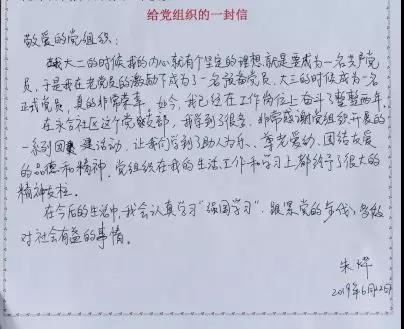 给党组织的一封信
敬爱的党组织:
大二的时候我的内心就有个坚定的理想,就是要成为一名共产党
员,于是我在老党员的激励下成为了一名预备党员,大三的时候成为一名
正式党员,真的非常荣幸。如今,我已经在工作岗位上奋斗了整整两年。
在永安社区这个党支部,我学到了很多,非常感谢党组织开展的
一系列团建活动,让我们学到了助人为乐、尊老爱幼、团结友爱
的品德和精神。党组织在我的生活、工作和学习上都给予了很大的
精神支柱。
在今后的生活中,我会认真学习“强国学习”,跟紧党的步伐,多做
对社会有益的事情。
朱烨
2019年6月12日